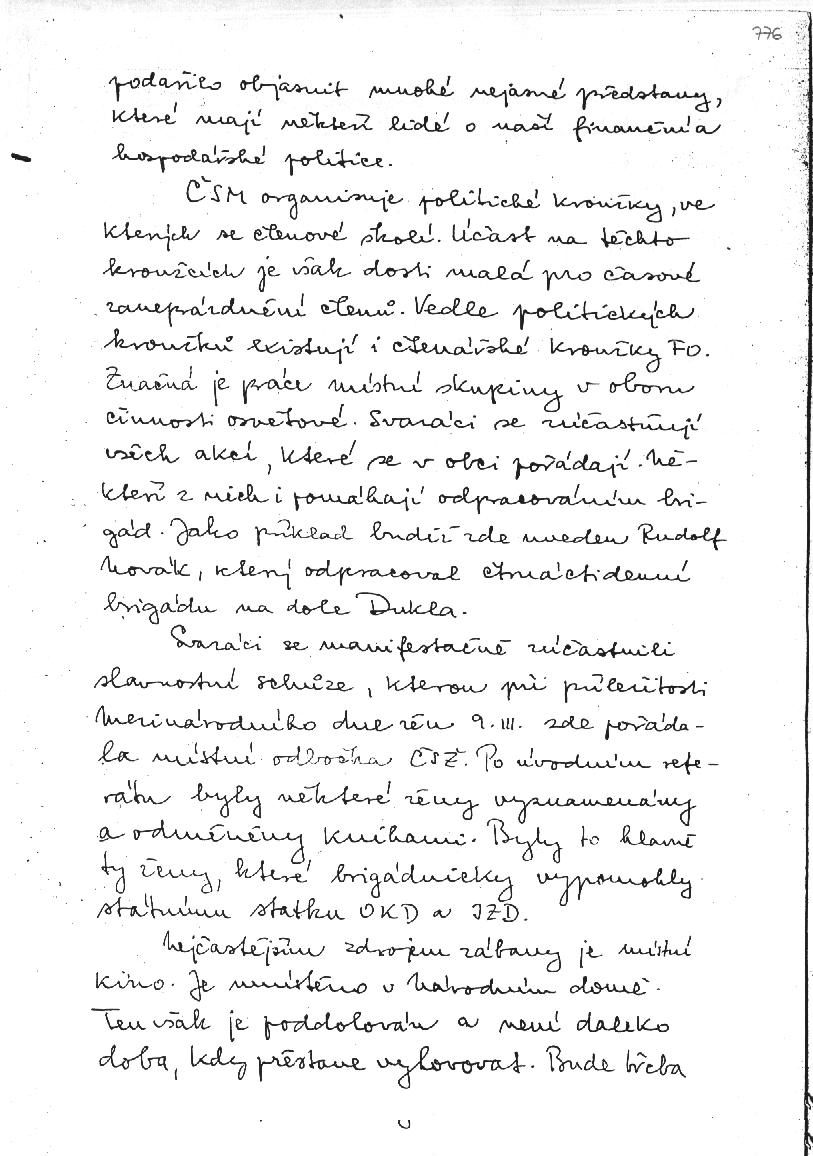 776
podařilo objasnit mnohé nejasné představy,
které mají někteří lidé o naší finanční a
hospodářské politice.
ČSM organisuje politické kroužky, ve
kterých se členové školí. Účast na těchto
kroužcích je však dosti malá pro časové
zaneprázdnění členů. Vedle politických
kroužků existují i čtenářské kroužky FO.
Značná je práce místní skupiny v oboru
činnosti osvětové. Svazáci se zúčastňují
všech akcí, které se v obci pořádají. Ně-
kteří z nich i pomáhají odpracováním bri-
gád. Jako příklad budiž zde uveden Rudolf
Novák, který odpracoval čtrnáctidenní
brigádu na dole Dukla.
Svazáci se manifestačně zúčastnili
slavnostní schůze, kterou při příležitosti
Mezinárodního dne žen 9. III. zde pořáda-
la místní odbočka ČSŽ. Po úvodním refe-
rátu byly některé ženy vyznamenány
a odměněny knihami. Byly to hlavně
ty ženy, které brigádnicky vypomohly
státnímu statku OKD a JZD.
Nejčastějším zdrojem zábavy je místní
kino. Je umístěno v Národním domě.
Ten však je poddolován a není daleko
doba, kdy přestane vyhovovat. Bude třeba